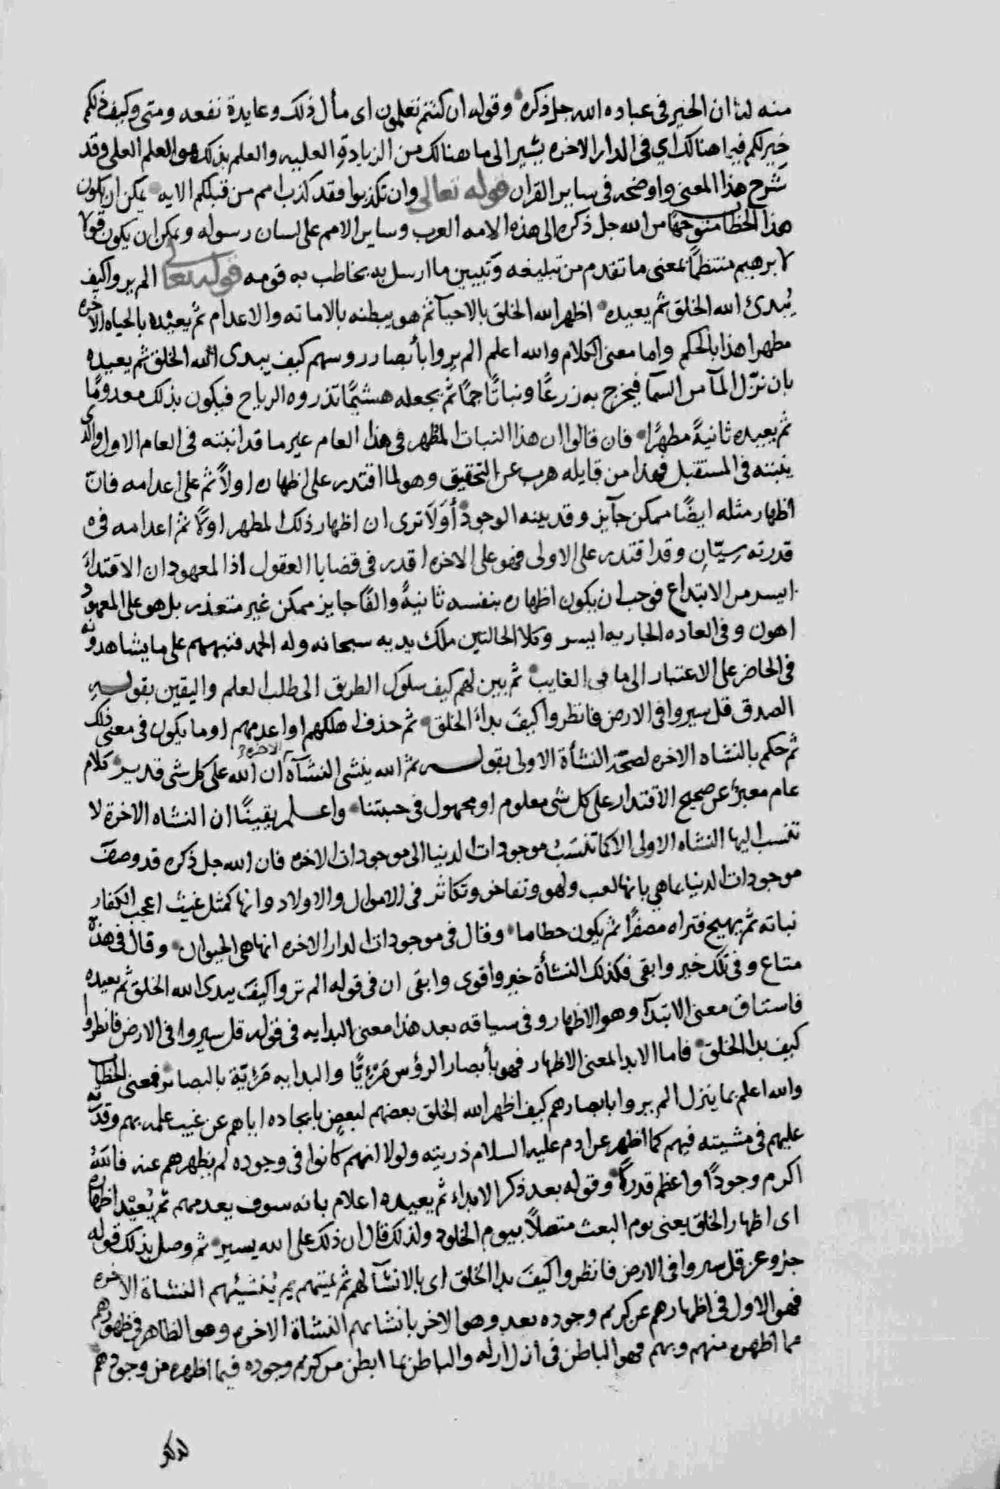 منه لنا ان الخير في عباده الله جل ذكره وقوله ان كنتم تعلمون اى مأل ذلك وعايدة نفعه ومتى وكيف ذلكم
خير لكم فيرا هنالك اي في الدار الاخره يشير الى ما هنالك من الزيادة العليه والعلم بذلك هو العلم العلى وقد
شرح هذا المعنى واوضحه في ساير القران قوله تعالى وان تكذبوا فقد كذب امم من قبلكم الايه يمكن ان يكون
هذا الخطاب متوجها من الله جل ذكره الى هذه الامه العرب وساير الامم على لسان رسوله ويمكن ان يكون قولا
لابرهيم منتظما لمعنى ما تقدم من تبليغه وتبيين ما ارسل به يخاطب به قومه قوله تعالى الم يروا كيف
يبدئ الله الخلق ثم يعيده اظهر الله الخلق بالاحيا ثم هو يبطنه بالاماته والاعدام ثم يعيده بالحياه الاخره
مظهرا هذا بالحكم واما معنى الكلام والله اعلم الم يروا بأبصار روسهم كيف يبدى الله الخلق ثم يعيده
بان نزل المآ من السمآ فيخرج به زرعًا ونباتًا جمًا ثم يجعله هشيمًا تذروه الرياح فيكون بذلك معدومًا
ثم يعيده ثانيةً مظهرًا فان قالوا ان هذا النبات المظهر في هذا العام غير ما قد انبته فى العام الاول والذى
ينبته في المستقبل فهذا من قايله هرب عن التحقيق وهو لما اقتدر على اظهاره اولاً ثم على اعدامه فان
اظهار مثله ايضًا ممكن جآيز وقد بينه الوجود أولا ترى ان اظهار ذلك المظهر اولا ثم اعدامه في
قدرته سيّان وقد اقتدر على الاولى فهو على الاخره اقدر في قضايا العقول اذ المعهود ان الاقتداء
ايسر من الابتداع فوجب ان يكون اظهاره بنفسه ثانيةً والفًا جايز ممكن غير متعذر بل هو على المعهود
اهون وفى العاده الجاريه ايسر وكلا الحالتين ملك يديه سبحانه وله الحمد فنبههم على ما يشاهدونه
فى الحاضر على الاعتبار الى ما في الغايب ثم بين لهم كيف سلوك الطريق الى طلب العلم واليقين بقوله
الصدق قل سيروا في الارض فانظروا كيف بدأ الخلق ثم حذف اهلكهم او اعدمهم او ما يكون في معنى ذلك
ثم حكم بالنشاه الاخره لصحّة النشأة الاولى بقوله ثم الله ينشى النشآة الاخرة ان الله على كل شى قدير كلام
عام معبرًا عن صحيح الاقتدار على كل شى معلوم او مجهول في حسبتنا واعلم يقينًا ان النشاه الاخرة لا
تنسب اليها النشاه الاولى الا كما تنسب موجودات الدنيا الى موجودات الاخره فان الله جل ذكره قد وصف
موجودات الدنيا بما هي بانها لعب ولهو وتفاخر وتكاثر في الاموال والاولاد وانها كمثل غيث اعجب الكفار
نباته ثم يهيج فتراه مصفرًا ثم يكون حطاما وقال فى موجودات الدار الاخره انها هى الحيوان وقال في هذه
متاع وفي تلك خير وابقى فكذلك النشأة خير واقوى وابقى ان فى قوله الم تروا كيف يبدى الله الخلق ثم يعيده
فاستاق معنى الابتدآ وهو الاظهار وفى سياقه بعد هذا معنى البدايه فى قوله قل سيروا في الارض فانظروا
كيف بدا الخلق فاما الابدا لمعنى الاظهار فهو بأبصار الرؤس مرءيًا والبدايه مرءيّة بالبصائر فمعنى الخطاب
والله اعلم بما ينزل الم يروا بابصارهم كيف اظهر الله الخلق بعضهم لبعض بايجاده اياهم عن غيب علمه بهم وقدرته
عليهم فى مشيته فيهم كما اظهر عن ادم عليه السلام ذريته ولولا انهم كانوا فى وجوده لم يظهرهم عنه فالله
اكرم وجودًا واعظم قدرة وقوله بعد ذكر الابداء ثم يعيده اعلام بانه سوف يعدمهم ثم يعيد اظهاره
اى اظهار الخلق يعنى يوم البعث متصلاً بيوم الخلود ولذلك قال ان ذلك على الله يسير ثم وصل بذلك قوله
جل وعز قل سيروا في الارض فانظروا كيف بدا الخلق اى بالانشآ لهم ثم يميتهم ثم ينشيئهم النشاة الاخره
فهو الاول فى اظهارهم عن كريم وجوده بعد وهو الاخر بانشائهم النشاة الاخرى وهو الظاهر فى ظهورهم
مما اظهره منهم وبهم فهو الباطن فى ازل ازله والباطن بما ابطن من كريم وجوده فيما اظهره من وجودهم